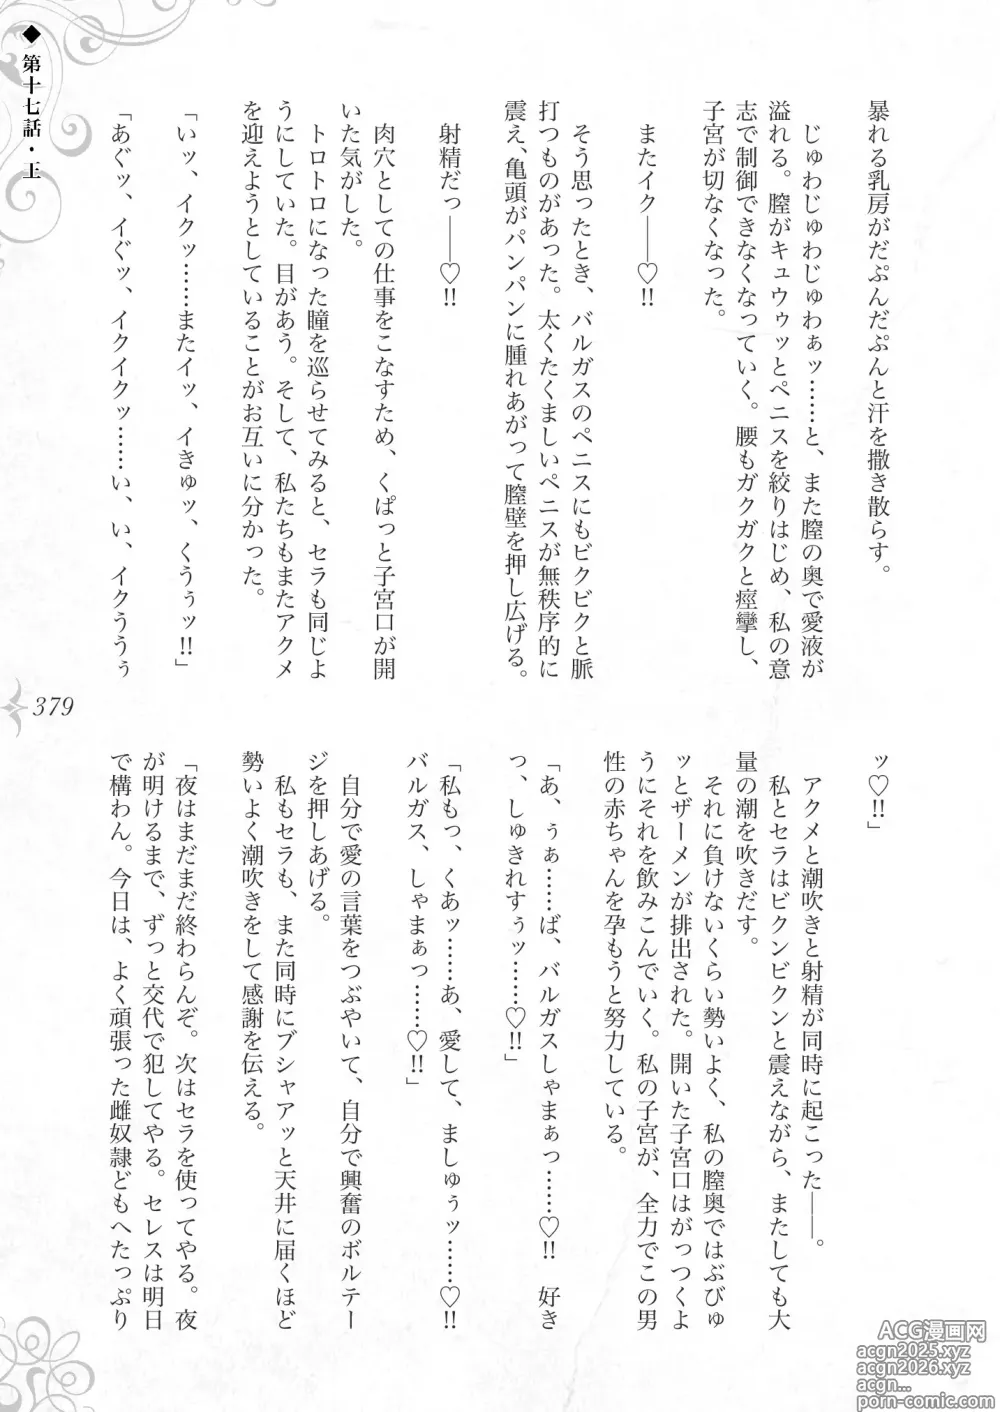 ◆ 第十七話・王
暴れる乳房がだぷんだぷんと汗を撒き散らす。
じゅわじゅわじゅわぁッ……と、また膣の奥で愛液が
溢れる。膣がキュウゥッとペニスを絞りはじめ、私の意
志で制御できなくなっていく。腰もガクガクと痙攣し、
子宮が切なくなった。
またイク――♡!!
そう思ったとき、バルガスのペニスにもビクビクと脈
打つものがあった。太くたくましいペニスが無秩序的に
震え、亀頭がパンパンに腫れあがって膣壁を押し広げる。
射精だっ――♡!!
肉穴としての仕事をこなすため、くぱっと子宮口が開
いた気がした。
トロトロになった瞳を巡らせてみると、セラも同じよ
うにしていた。目があう。そして、私たちもまたアクメ
を迎えようとしていることがお互いに分かった。
「いッ、イクッ……またイッ、イきゅッ、くうぅッ!!」
「あぐッ、イぐッ、イクイクッ……い、い、イクううぅ
ッ♡!!」
アクメと潮吹きと射精が同時に起こった――。
私とセラはビクンビクンと震えながら、またしても大
量の潮を吹きだす。
それに負けないくらい勢いよく、私の膣奥ではぶびゅ
ッとザーメンが排出された。開いた子宮口はがっつくよ
うにそれを飲みこんでいく。私の子宮が、全力でこの男
性の赤ちゃんを孕もうと努力している。
「あ、ぅぁ……ば、バルガスしゃまぁっ……♡!! 好き
っ、しゅきれすぅッ……♡!!」
「私もっ、くあッ……あ、愛して、ましゅぅッ……♡!!
バルガス、しゃまぁっ……♡!!」
自分で愛の言葉をつぶやいて、自分で興奮のボルテー
ジを押しあげる。
私もセラも、また同時にブシャアッと天井に届くほど
勢いよく潮吹きをして感謝を伝える。
「夜はまだまだ終わらんぞ。次はセラを使ってやる。夜
が明けるまで、ずっと交代で犯してやる。セレスは明日
で構わん。今日は、よく頑張った雌奴隷どもへたっぷり
379
ACG漫画网
acgn2025.xyz
acgn2026.xyz
acgn...
porn-comic.com